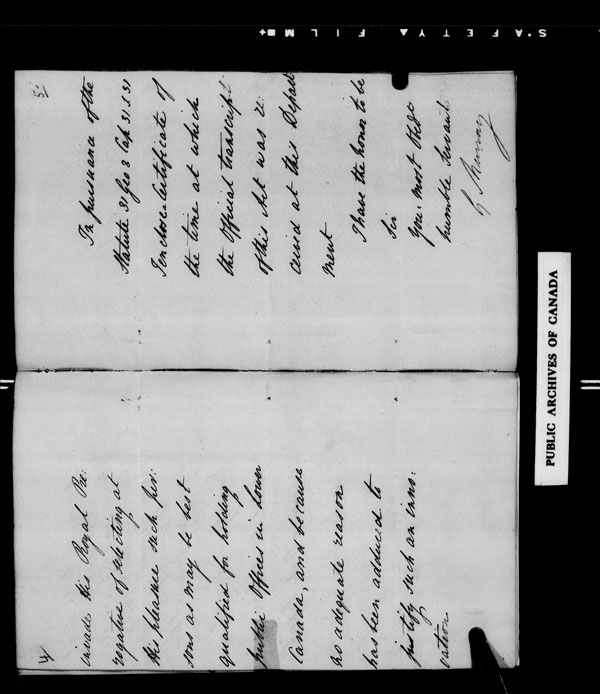 4/
invade His Royal Pre:
rogative of selecting at
His pleasure such per:
sons as may be best
qualified for holding
public Offices in Lower
Canada, and because
no adequate reason
has been adduced to
justify such an inno:
vation
5/
In pursuance of the
Statute 31 Geo 3 Cap 31. S 31
I enclose a Certificate of
the time at which
the Official transcript
of this Act was re:
ceived at this Depart
ment
I have the honor to be
Sir
Your most Obedt
humble Servant
G Murray
PUBLIC ARCHIVES OF CANADA
S'AFETY ▲ FILM